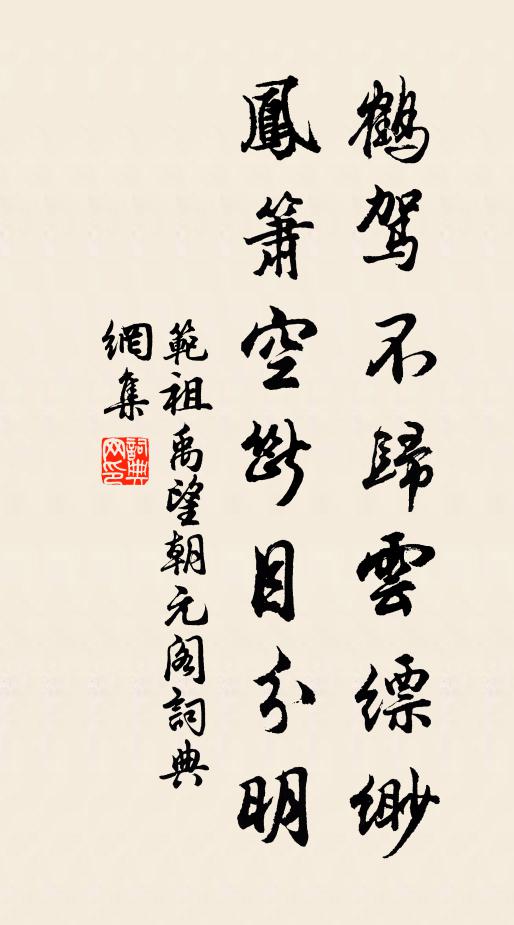 鶴駕不歸雲縹緲
鳳簫空斷目分明
範祖禹望朝元阁詞典
網集
詞典网印